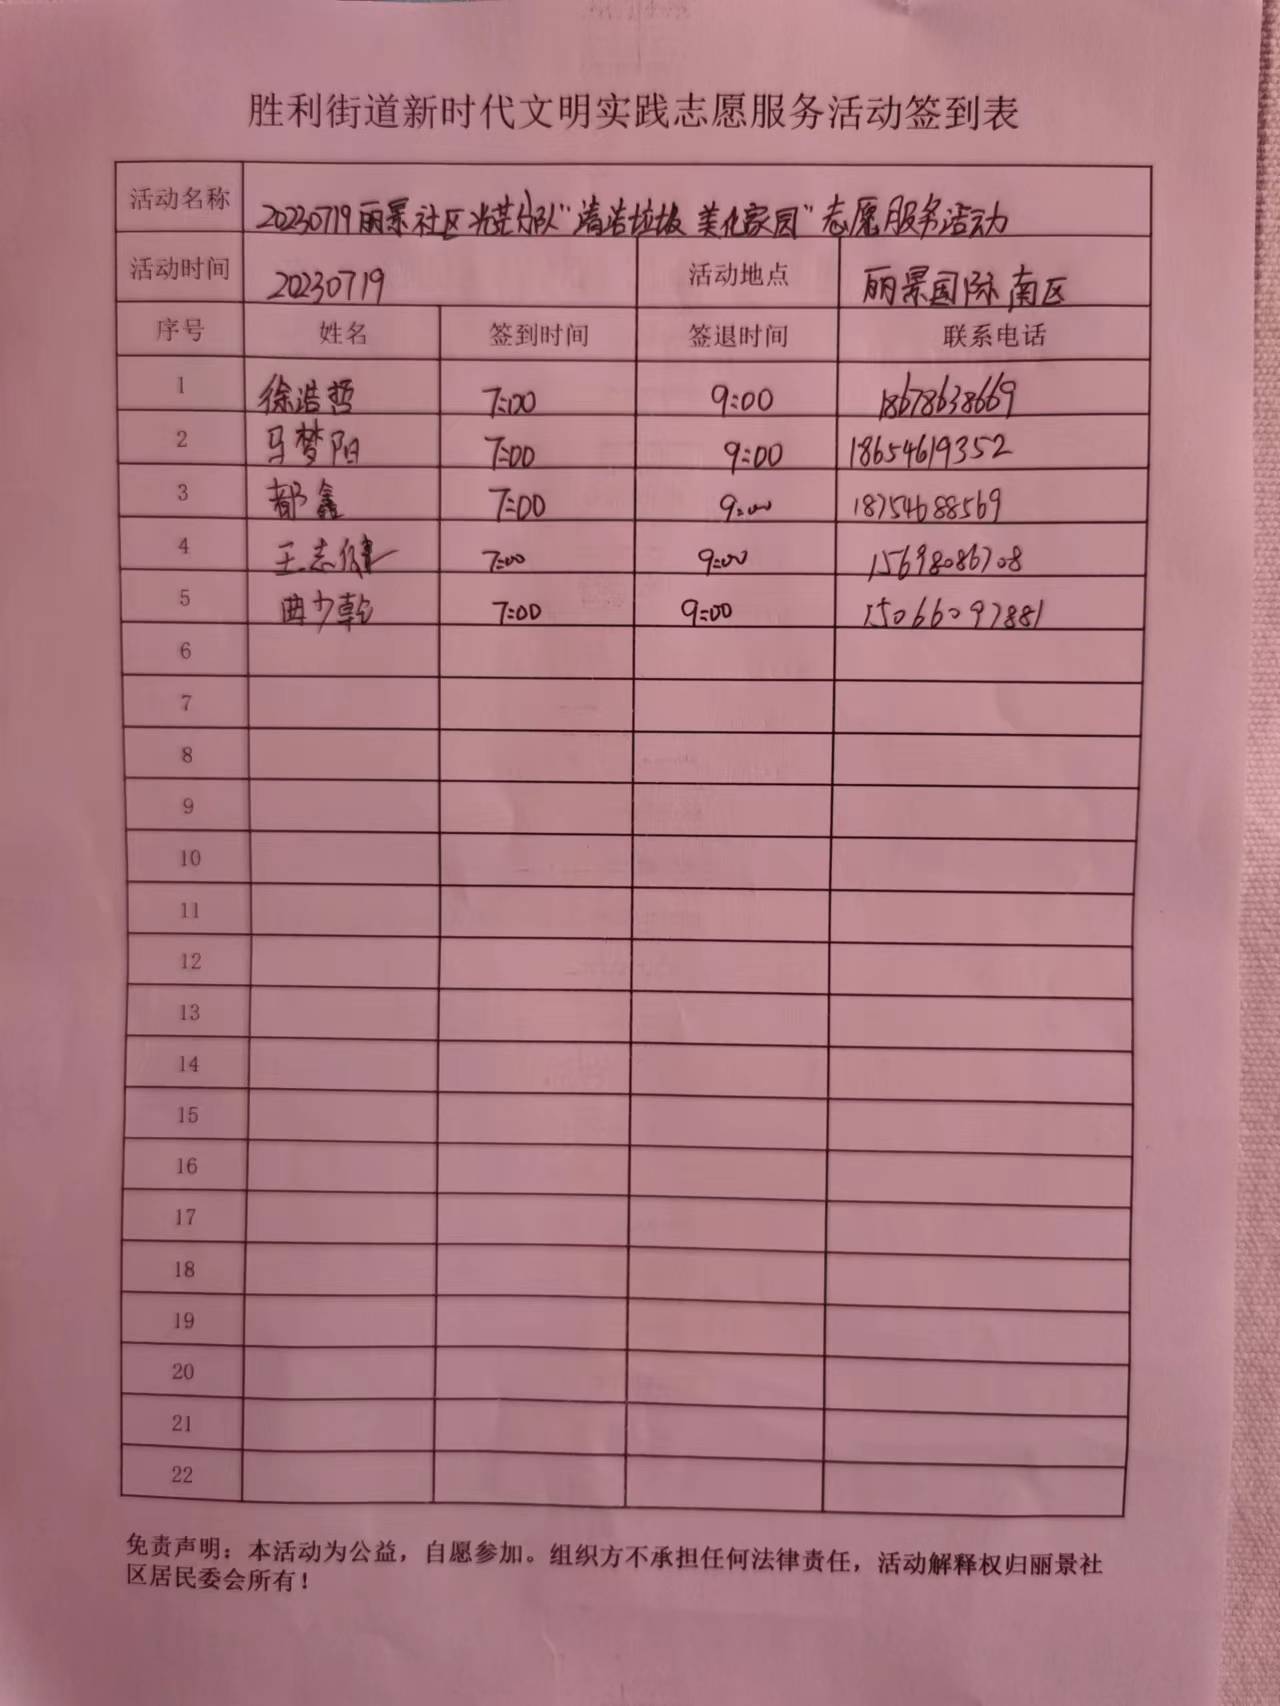 胜利街道新时代文明实践志愿服务活动签到表
活动名称 20230719丽景社区光芒分队“清洁垃圾 美化家园”志愿服务活动
活动时间 20230719 活动地点 丽景国际南区
序号 姓名 签到时间 签退时间 联系电话
1 徐浩哲 7:00 9:00 18678638669
2 马梦阳 7:00 9:00 18654619352
3 都鑫 7:00 9:00 18754688569
4 王志健 7:00 9:00 15698086708
5 曲少乾 7:00 9:00 15066097881
6
7
8
9
10
11
12
13
14
15
16
17
18
19
20
21
22
免责声明：本活动为公益，自愿参加。组织方不承担任何法律责任，活动解释权归丽景社
区居民委会所有！